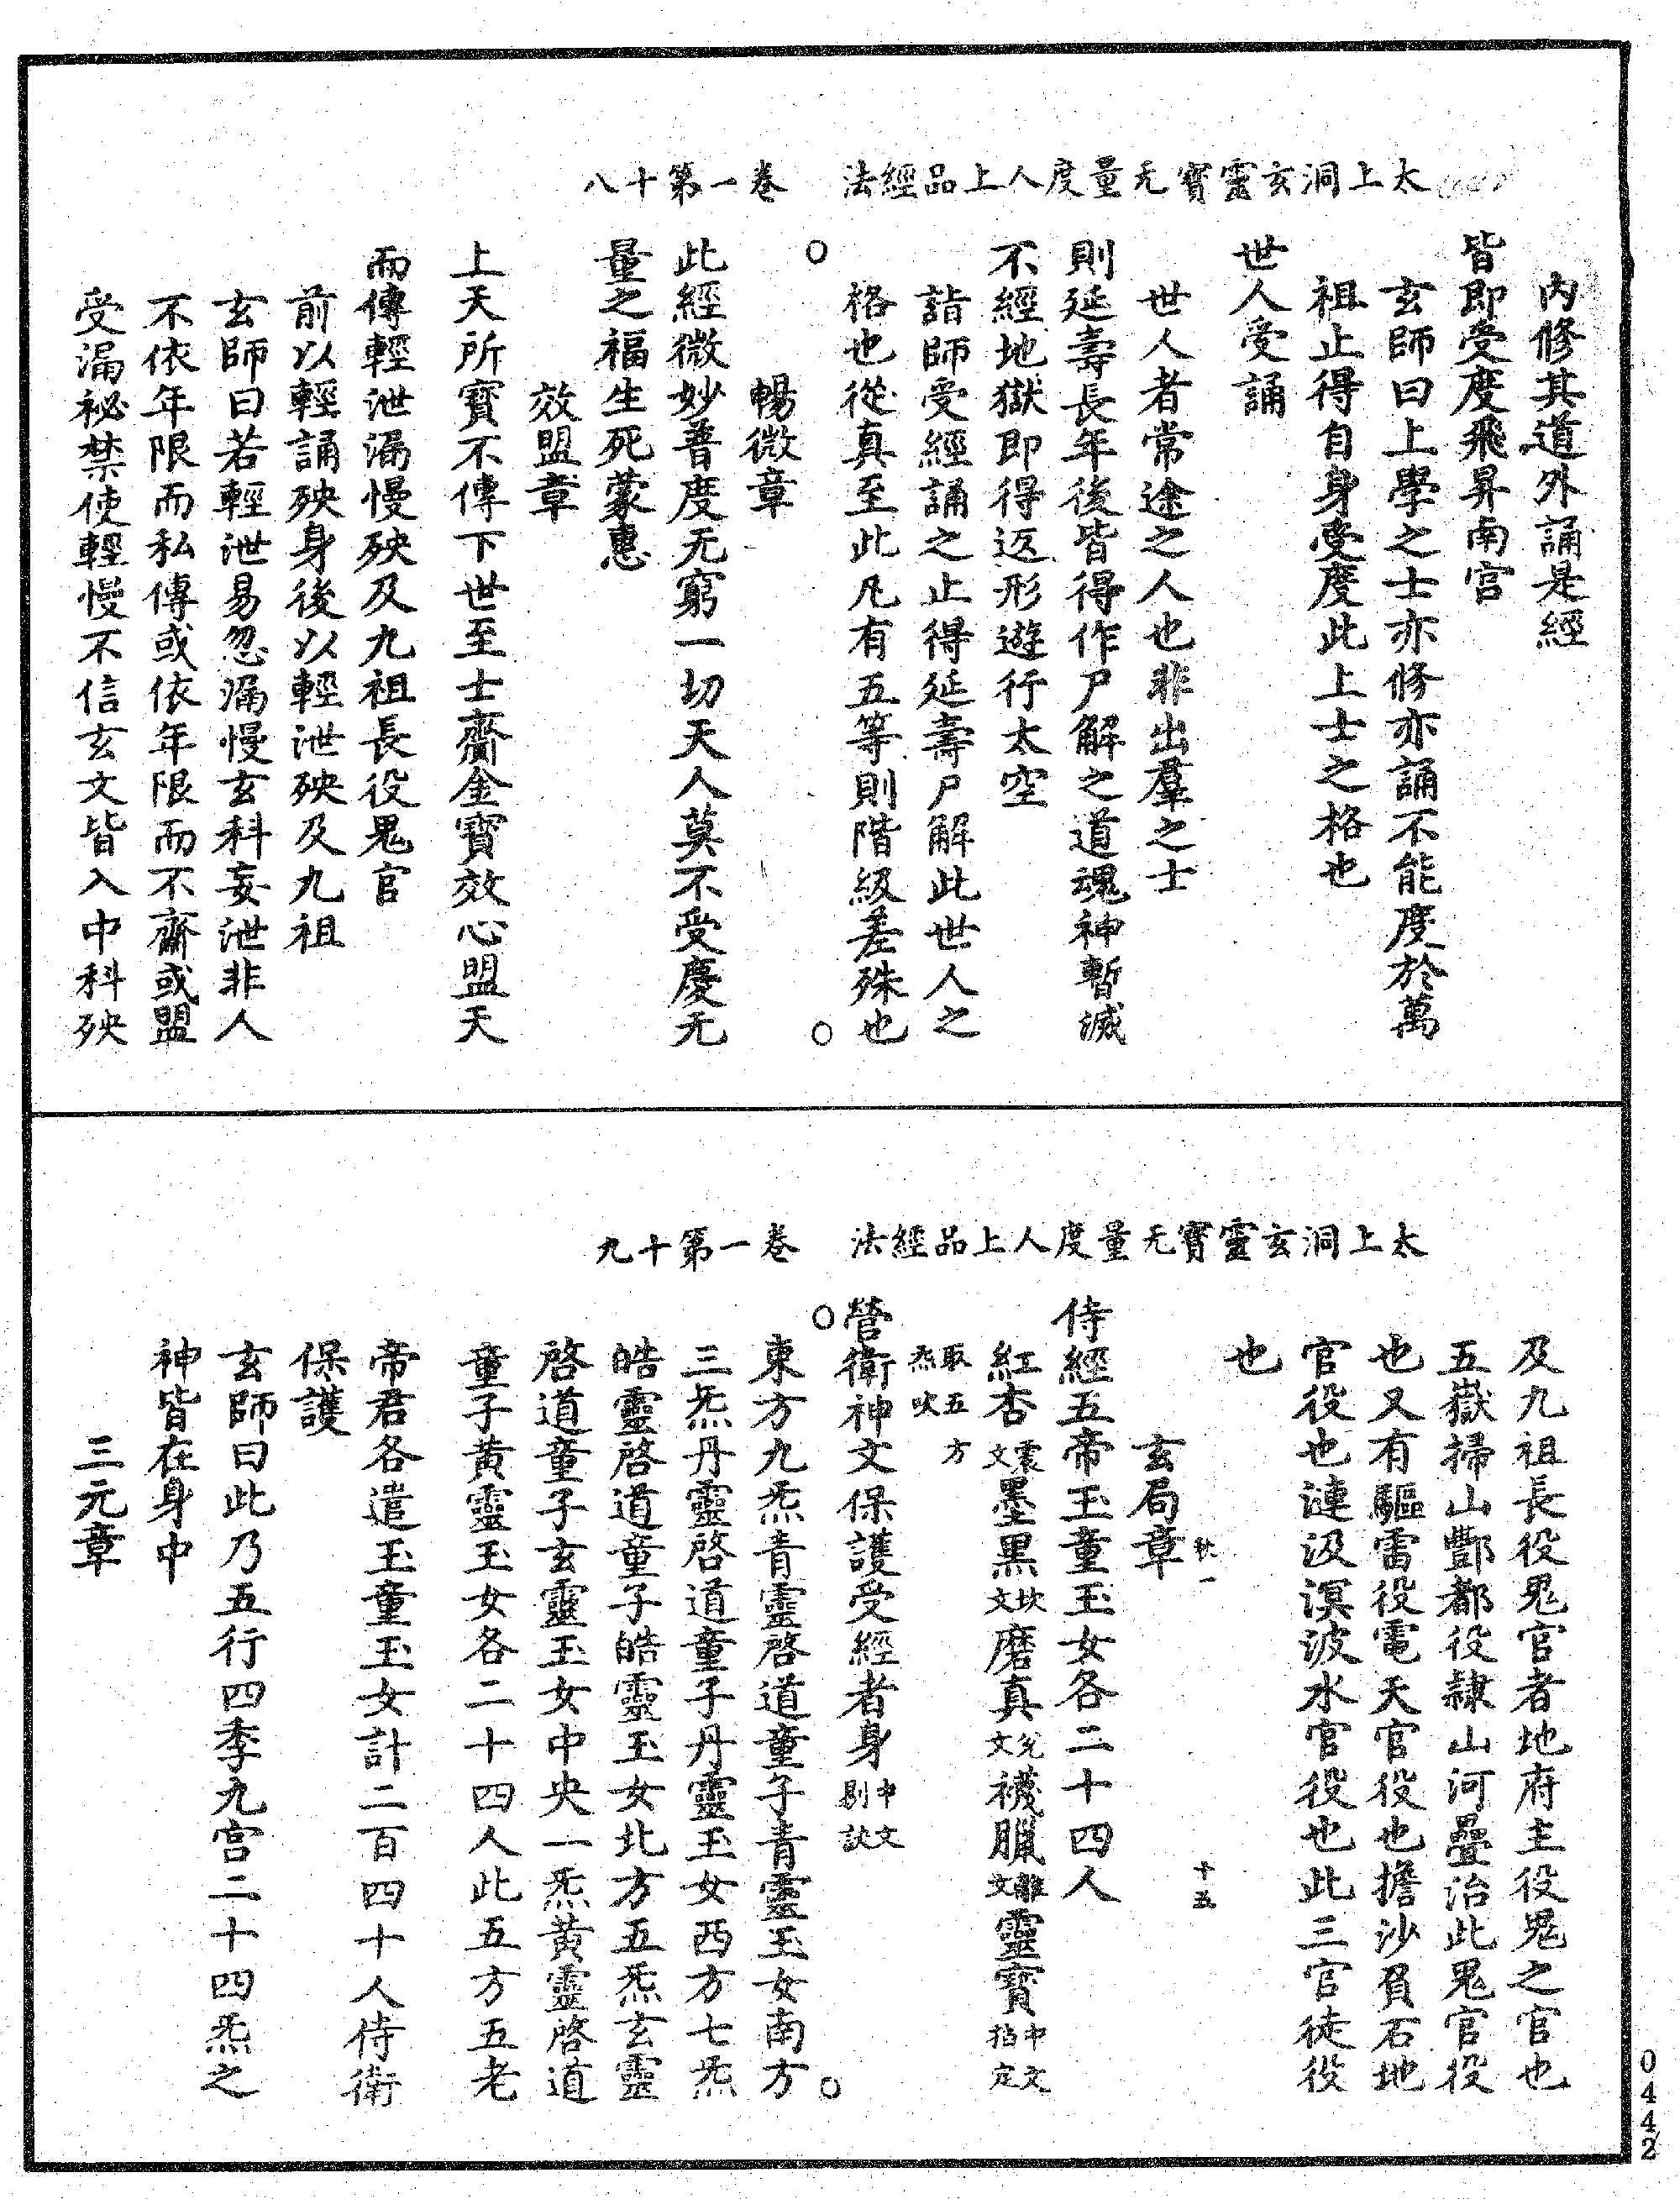 太上洞玄靈寶无量度人上品經法　卷一第十八
內修其道外誦是經
皆即受度飛昇南宮
玄師曰上學之士亦修亦誦不能度於萬
祖止得自身受度此上士之格也
世人受誦
世人者常途之人也非出羣之士
則延壽長年後皆得作尸解之道魂神暫滅
不經地獄即得返形遊行太空
詣師受經誦之止得延壽尸解此世人之
格也從真至此凡有五等則階級差殊也
暢微章
此經微妙普度无窮一切天人莫不受慶无
量之福生死蒙惠
效盟章
上天所寶不傳下世至士齎金寶效心盟天
而傳輕泄漏慢殃及九祖長役鬼官
前以輕誦殃身後以輕泄殃及九祖
玄師曰若輕泄易忽漏慢玄科妄泄非人
不依年限而私傳或依年限而不齋或盟
受漏祕禁使輕慢不信玄文皆入中科殃
太上洞玄靈寶无量度人上品經法　卷一第十九
及九祖長役鬼官者地府主役鬼之官也
五嶽掃山酆都役隸山河疊治此鬼官役
也又有驅雷役電天官役也擔沙負石地
官役也漣汲溟波水官役也此三官徒役
也
玄局章
十五
侍經五帝玉童玉女各二十四人
紅杏震文墨黑坎文磨真兌文襪臘離文靈寶中文掐定
取五方炁吹
營衛神文保護受經者身中文剔訣
東方九炁青靈啓道童子青靈玉女南方
三炁丹靈啓道童子丹靈玉女西方七炁
皓靈啓道童子皓靈玉女北方五炁玄靈
啓道童子玄靈玉女中央一炁黃靈啓道
童子黃靈玉女各二十四人此五方五老
帝君各遣玉童玉女計二百四十人侍衛
保護
玄師曰此乃五行四季九宮二十四炁之
神皆在身中
三元章
0442